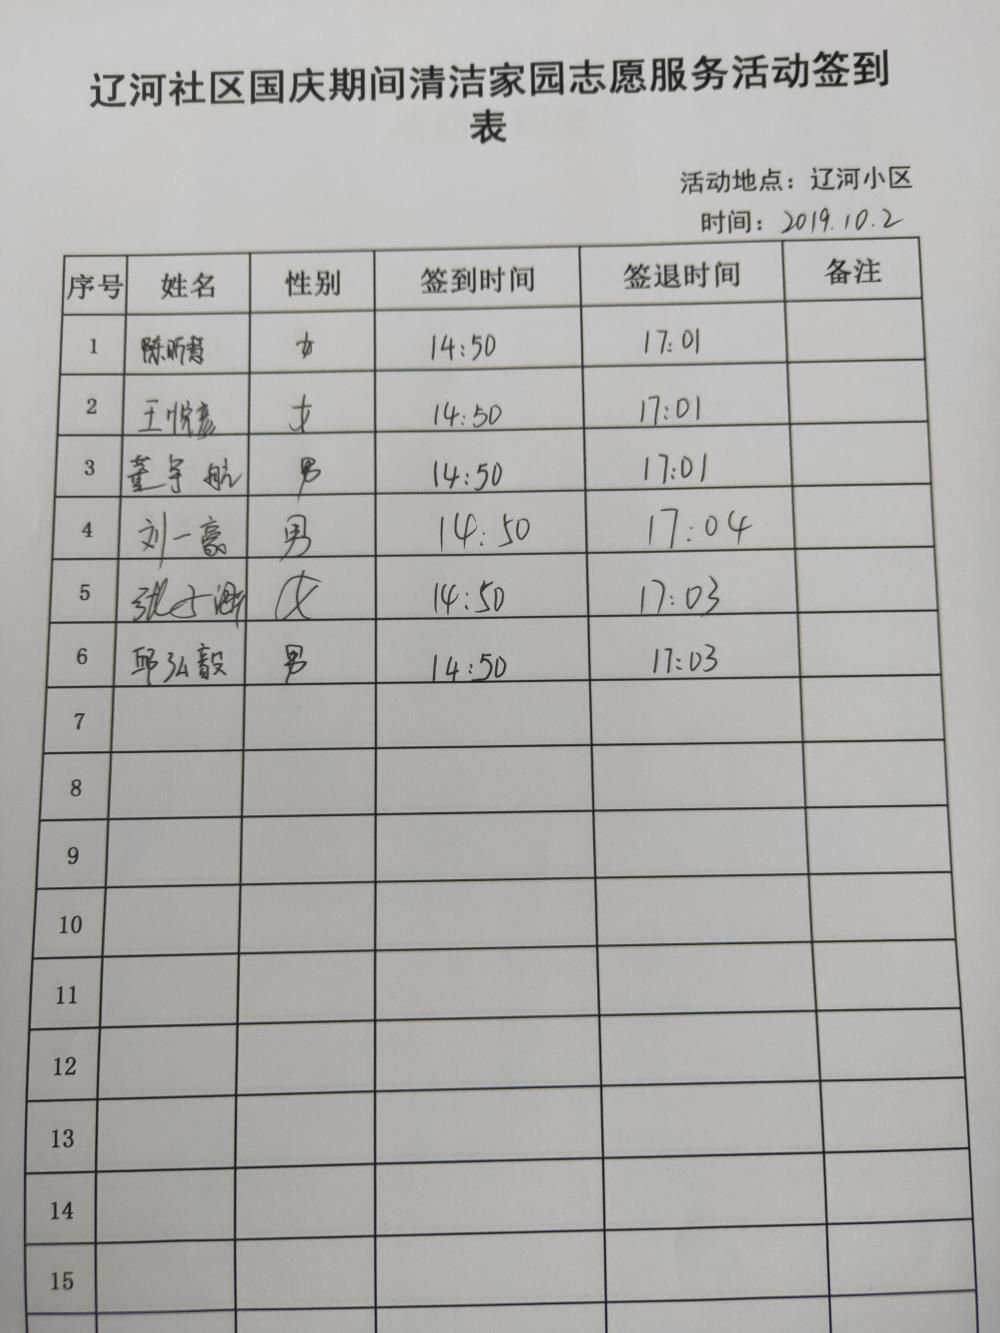 辽河社区国庆期间清洁家园志愿服务活动签到
表
活动地点：辽河小区
时间：2019.10.2
序号 姓名 性别 签到时间 签退时间 备注
1 陈昕慧 女 14:50 17:01
2 王悦彦 女 14:50 17:01
3 董宇航 男 14:50 17:01
4 刘一豪 男 14:50 17:04
5 张 女 14:50 17:03
6 邱弘毅 男 14:50 17:03
7
8
9
10
11
12
13
14
15